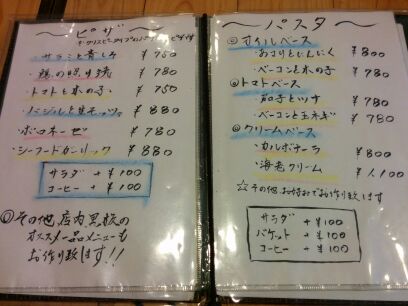 〜ピザ〜
・サラミと青じそ ￥750
・鶏の照り焼 ￥780
・トマトと木の子 ￥750
・バジルと生モッツァ ￥880
・ボロネーゼ ￥780
・シーフードガーリック ￥880
サラダ +￥100
コーヒー +￥100
その他店内黒板の
オススメ一品メニューも
お作り致します!!
〜パスタ〜
オイルベース
・あさりとにんにく ￥800
・ベーコンと木の子 ￥780
トマトベース
・茄子とツナ ￥780
・ベーコンと玉ネギ ￥780
クリームベース
・カルボナーラ ￥800
・海老クリーム ￥1,100
☆その他お好みでお作り致します
サラダ +￥100
バケット +￥100
コーヒー +￥100